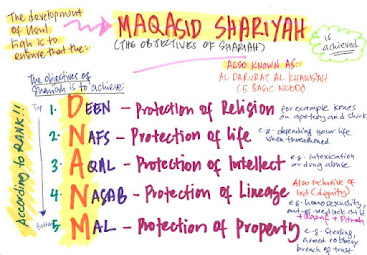 The development of Usul fiqh is to ensure that the:
MAQASID SHARIYAH
(THE OBJECTIVES OF SHARIAH)
is achieved
ALSO KNOWN AS:
AL DARURAT AL KHAMSAH
(5 BASIC NEEDS)
The objectives of Shariah is to achieve:
According to RANK!!
Top
1 DEEN - Protection of Religion
for example issues on apostasy and shirk
2 NAFS - Protection of life
e.g - defending your life when threathened
3 AQAL - Protection of Intellect
e.g - Intoxication or drug abuse
4 NASAB - Protection of Lineage
Also inclusive of Ird (dignity)
e.g - homosexuality, out-of-wedlock child
+ Qazaf + Fitnah
Bottom
5 MAL - Protection of Property
e.g - Stealing, armed robbery
breach of trust